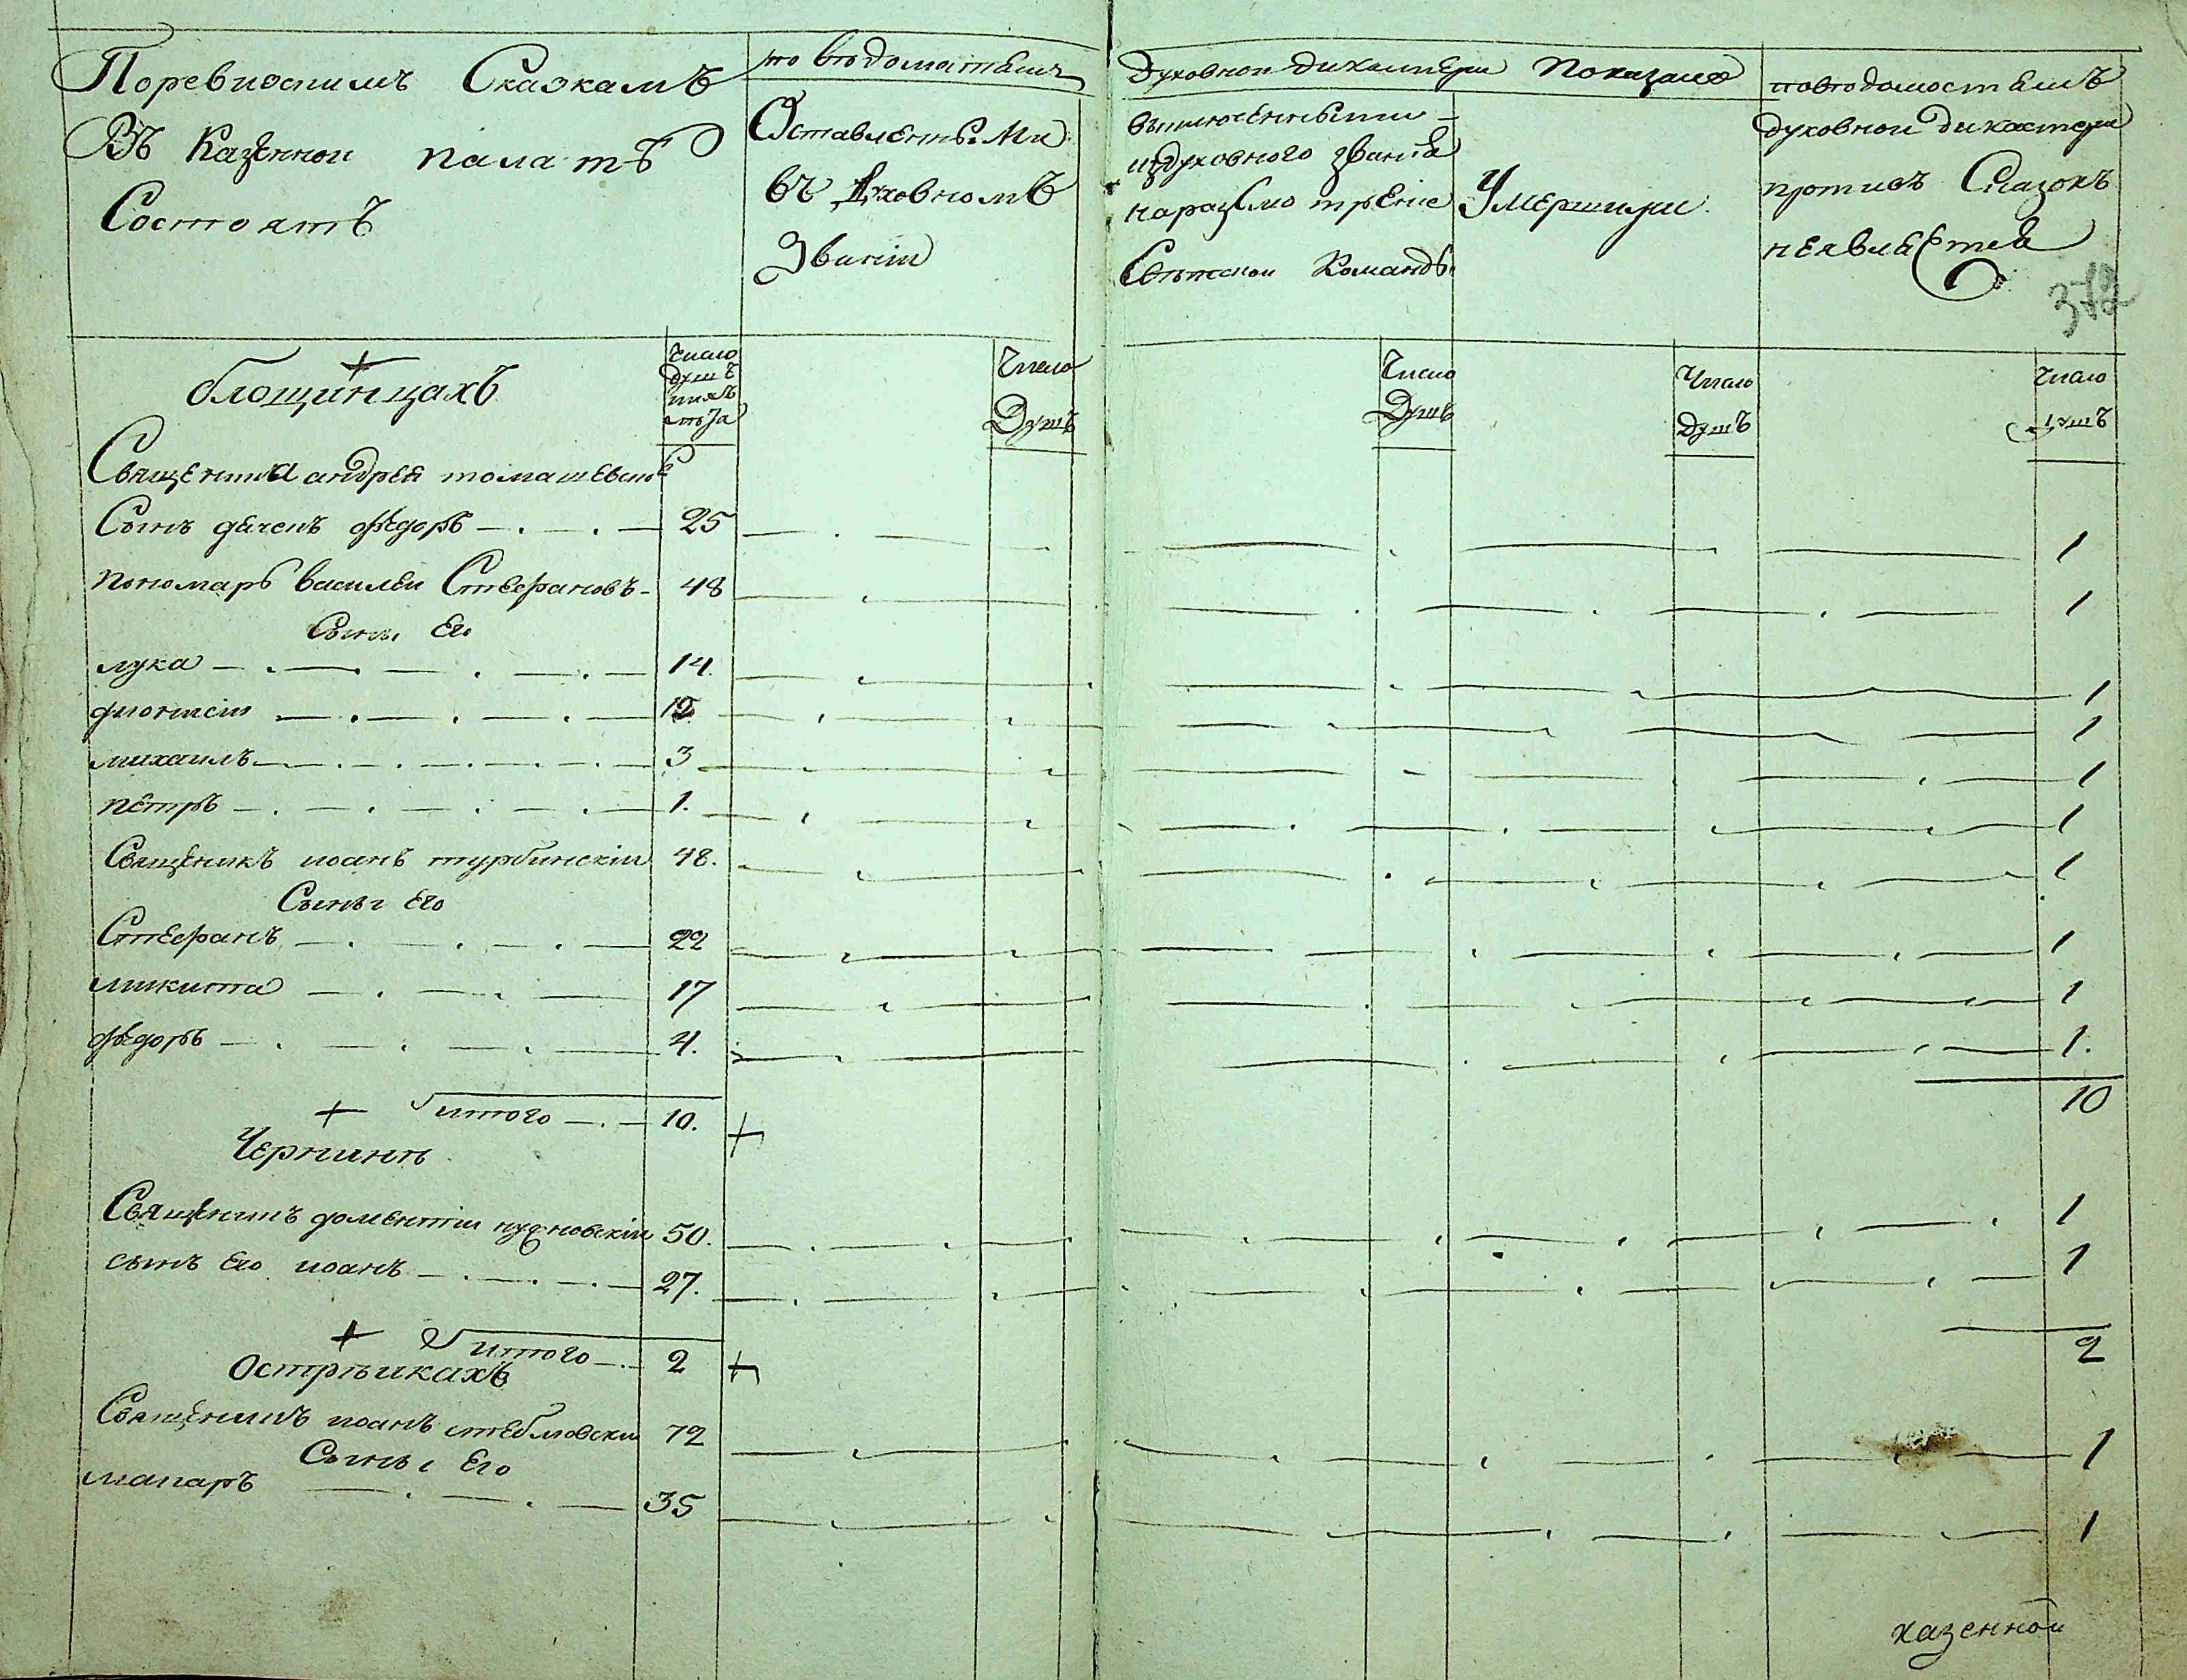 Поревизскимъ Сказкамъ
Въ Казенной палатѣ
Состоятъ
по вѣдомостямъ
Духовной дикастери Показано
повѣдомостямъ
Оставленными
въ Духовномъ
Званіи
выключенными
издуховного званія
наразсмотреніе
Свѣтской Команды
Умершими
духовной дикастери
противъ Сказокъ
неявляется
372
блощинцахъ
Число душъ
ихъ лѣта
Число Душъ
Число Душъ
Число душъ
Число душъ
Священника андрея томашевског
Сынъ дячекъ федоръ 25 1
пономаръ василей Стефановъ 48 1
Сыны Его
лука 14. 1
дионисій 12 1
михаилъ 3 1
петръ 1. 1
Священикъ иоанъ турбинскій 48. 1
Сыны Его
Стефанъ 22 1
микита 17 1
федоръ 4. 1.
итого 10. 10
Чернинѣ
Священикъ доментій 50. 1
сынъ Его иоанъ 27. 1
итого 2 2
Острѣйкахъ
Священикъ иоанъ стебловски 72 1
Сыны Его
макаръ 35 1
казенной